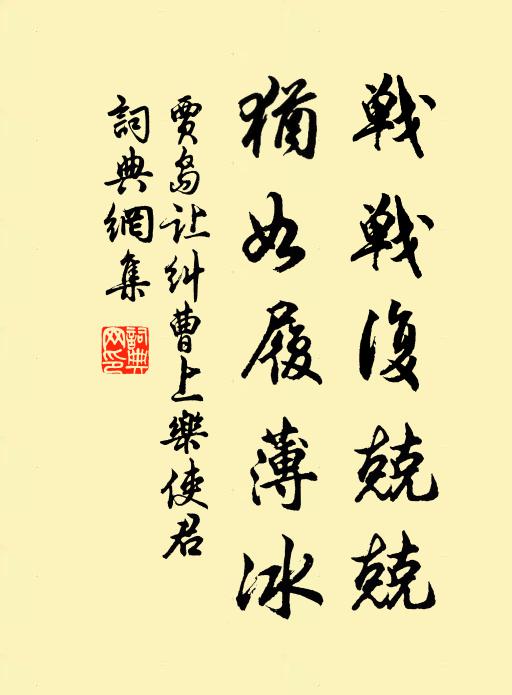 戰戰復兢兢
猶如履薄冰
賈島让糾曹上樂使君
詞典網集
詞典網印